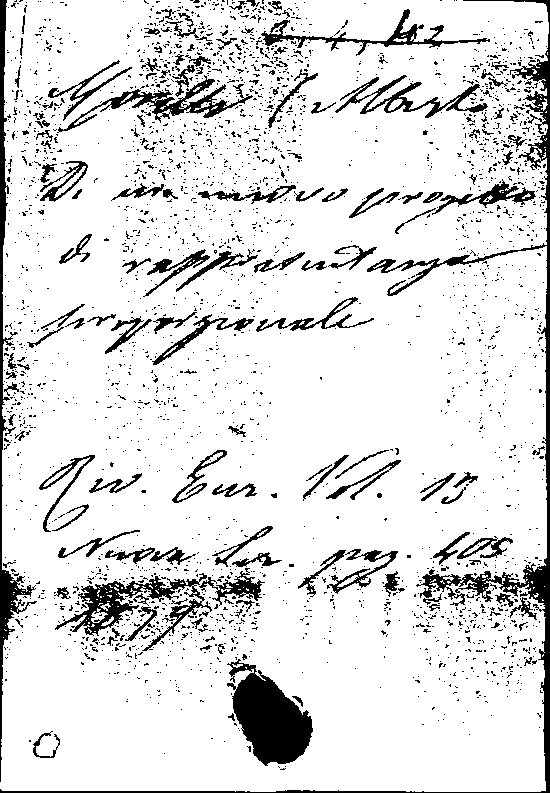 2, 4, 102
Morelli (Albert
Di un nuovo progetto
di rappresentanza
proporzionale
Riv. Eur. Vol. 13
Nuova Ser. pag. 405
1879